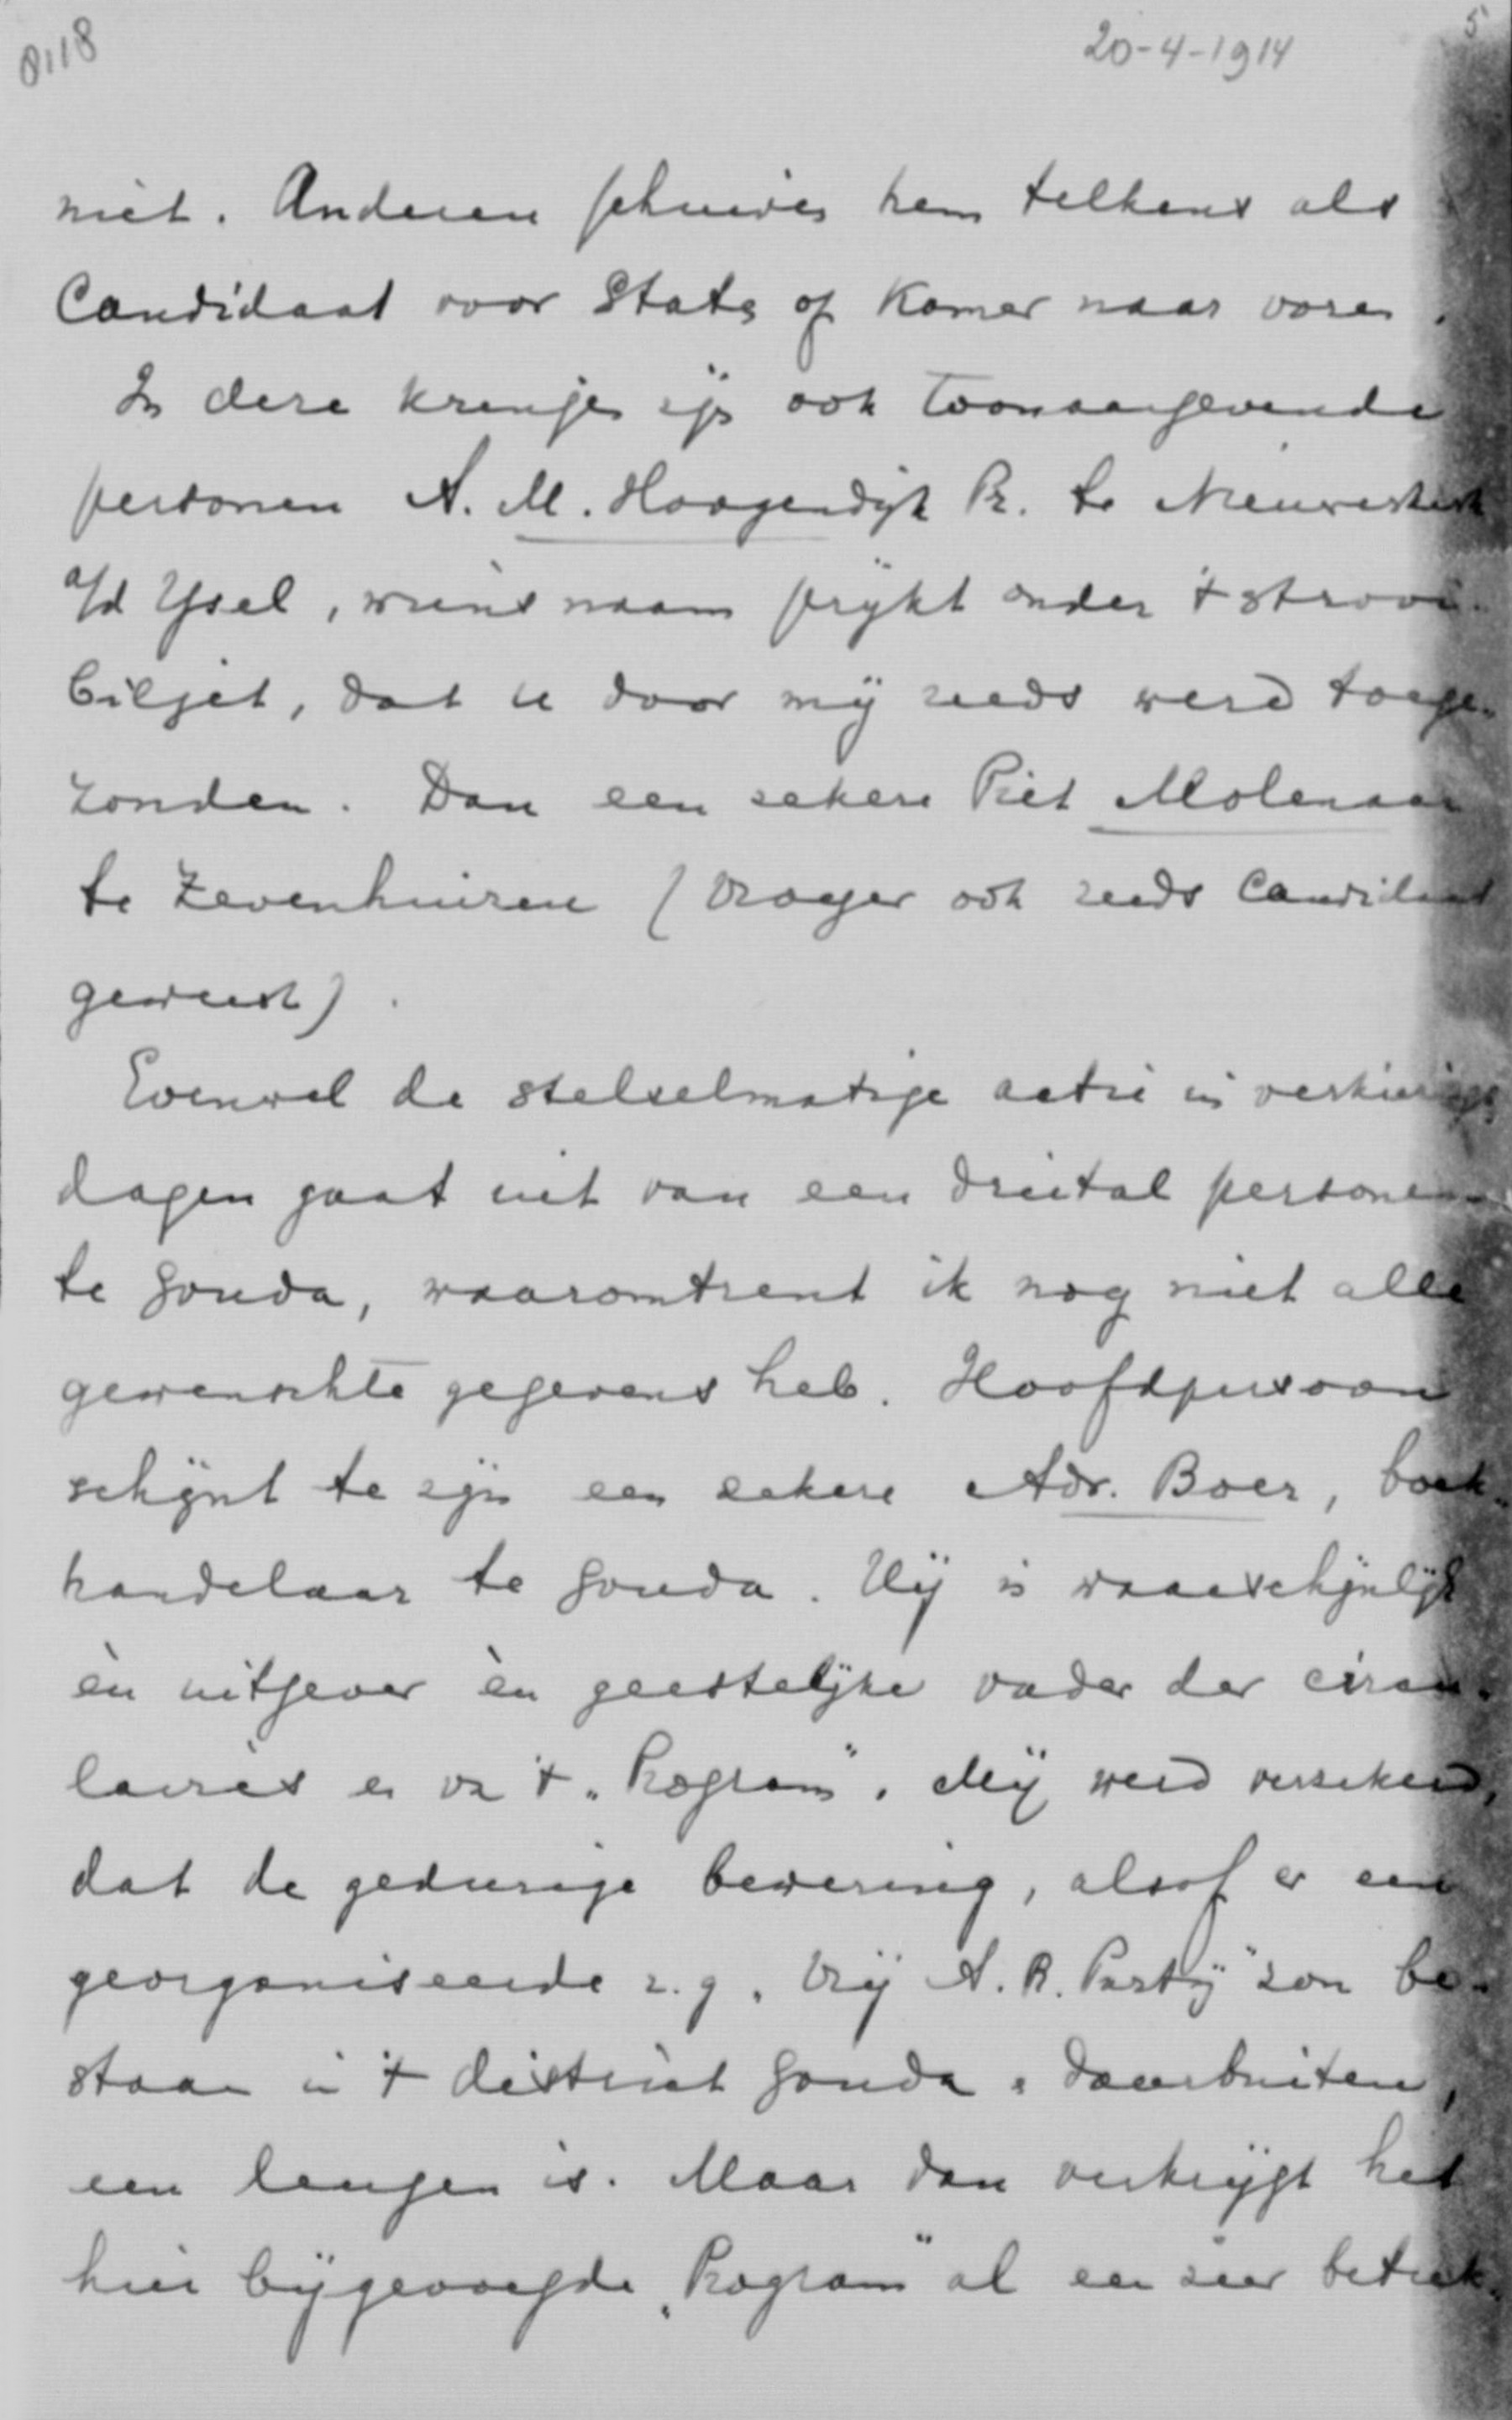 8118 20-4-1914 5
niet. Anderen schuiven hem telkens als
Candidaat voor Staten of Kamer naar voren.
In deze kringen zijn ook toonaangevende
personen A. M. Hoogendijk Pz. te Nieuwerkerk
a/d Ysel, wiens naam prijkt onder 't strooi-
biljet, dat u door mij reeds werd toege-
zonden. Dan een zekere Piet Molenaar
te Zevenhuizen (vroeger ook reeds Candidaat
geweest).
Evenwel de stelselmatige actie in verkiezings
dagen gaat uit van een drietal personen
te Gouda, waaromtrent ik nog niet alle
gewenschte gegevens heb. Hoofdpersoon
schijnt te zijn een zekere Adr. Boer, boek-
handelaar te Gouda. Hij is waarschijnlijk
èn uitgever èn geestelijke vader der circu-
laires en van 't „Program". Mij werd verzekerd,
dat de gedurige bewering, alsof er een
georganiseerde z.g. „Vrij A. R. Partij" zou be-
staan in 't district Gouda en daarbuiten,
een leugen is. Maar dan verkrijgt het
hier bijgevoegde „Program" al een zeer betrek-